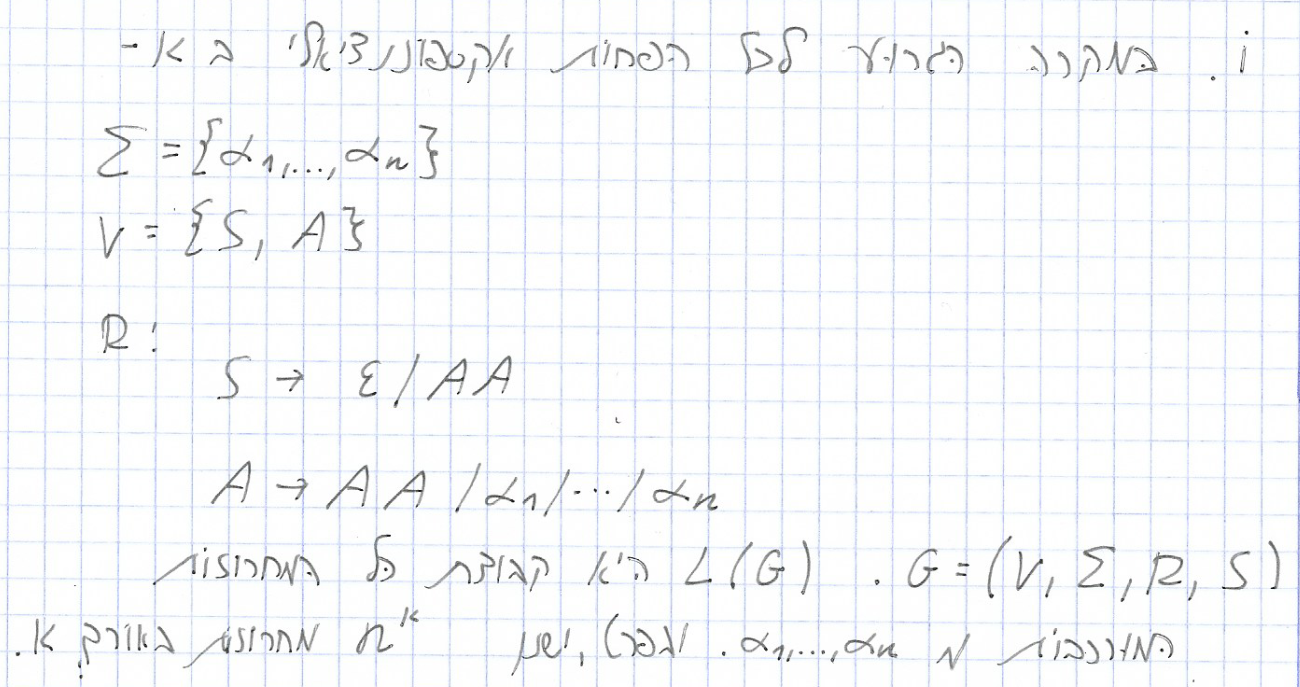 i. במקרה הגרוע לכל הפחות אקספוננציאלי ב k-
Σ = {α1,...,αn}
V = {S, A}
R:
S → ε / AA
A → AA / α1 / ... / αn
G = (V, Σ, R, S) . L(G) היא קבוצת כל המחרוזות
המורכבות מ α1,...,αn . ובפרט, ישנן n^k מחרוזות באורך k.